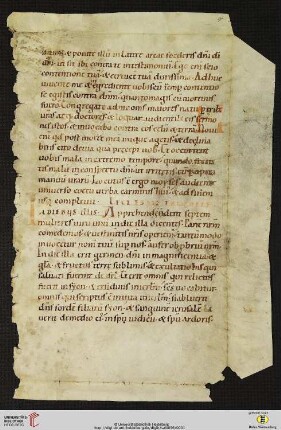 & ponite illu in latere arcae foederis dni di
ut sit ibi contra te in testimoniu ego eni scio
contentione tua & ceruice tua durissima Adhuc
uiuente me & uobiscu semp contentio
se egistis contra dnm quanto magis cu mortuus
fuero Congregate ad me oms maiores natu p trib
doctores & loquar audientib; eis sermo
nes istos & inuocabo contra eos celu & terra Noui
eni qd post morte mea inique agetis & declina
bitis cito de uia qua precepi uob & occurrent
uobis mala in extremo tempore quando feceritis
malu in conspectu dni ut irritetis eu p opera
manuu uraru Locutus e ergo moyses audiente
uniuerso coetu uerba carminis huius & ad fine
usq; compleuit
diebus illis Apprehendent septem
mulieres uiru unu in die illa dicentes Pane nrm
comedemus & uestimentis nris operiemur
inuocetur nom tuu sup nos aufer obprobriu nrm
In die illa erit germen dni in magnificentia &
gla & fructus terre sublimis & exultatio his qui
saluati fuerint de isrl Et erit omnis qui relictus
fuerit in syon & residuus in ierlm scs uocabitur
omnis qui scriptus e in uita in ierlm si abluerit
dns sorde filiaru syon & sanguine ierusalem la
uerit de medio ei in spu iudicii & spu ardoris